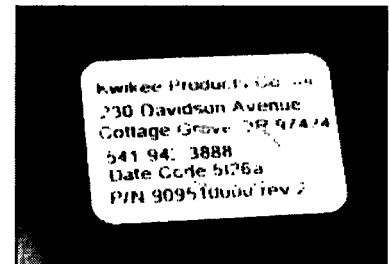 Kwikee Products
230 Davidson Avenue
Cottage Grove OR 97424
541 942 3888
Date Code
P/N rev